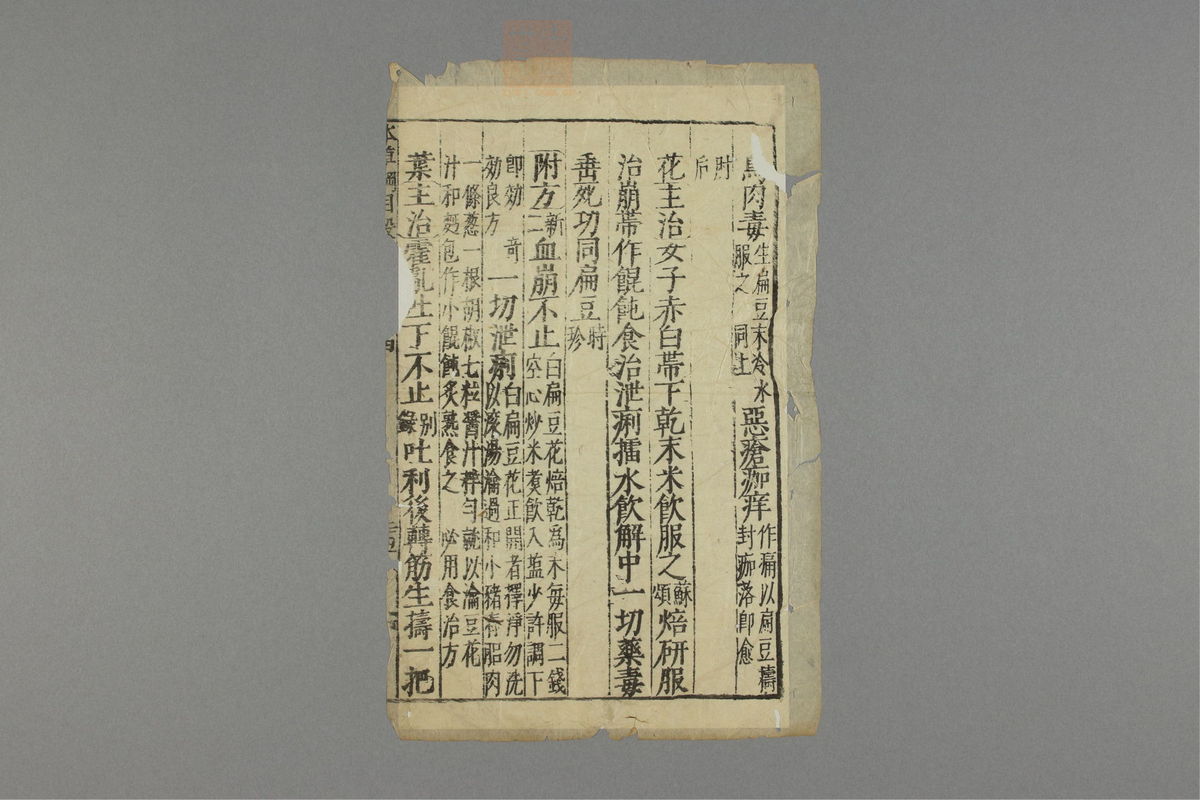 鳥肉毒生扁豆末冷水服之同上惡瘡痂痒作痛以扁豆擣封痂落卽愈
肘后
花主治女子赤白帶下乾末米飲服之蘇頌焙研服
治崩帶作餛飩食治泄痢擂水飲解中一切藥毒
垂死功同扁豆時珍
附方新二血崩不止白扁豆花焙乾爲末每服二錢空心炒米煮飲入盐少許調下
即効奇効良方一切泄痢白扁豆花正開者擇淨勿洗以滚湯瀹過和小豬脊䏰肉
一條葱一根胡椒七粒醬汁拌勻就以瀹豆花汁和麪包作小餛飩炙熟食之必用食治方
葉主治霍亂吐下不止別錄吐利後轉筋生擣一把